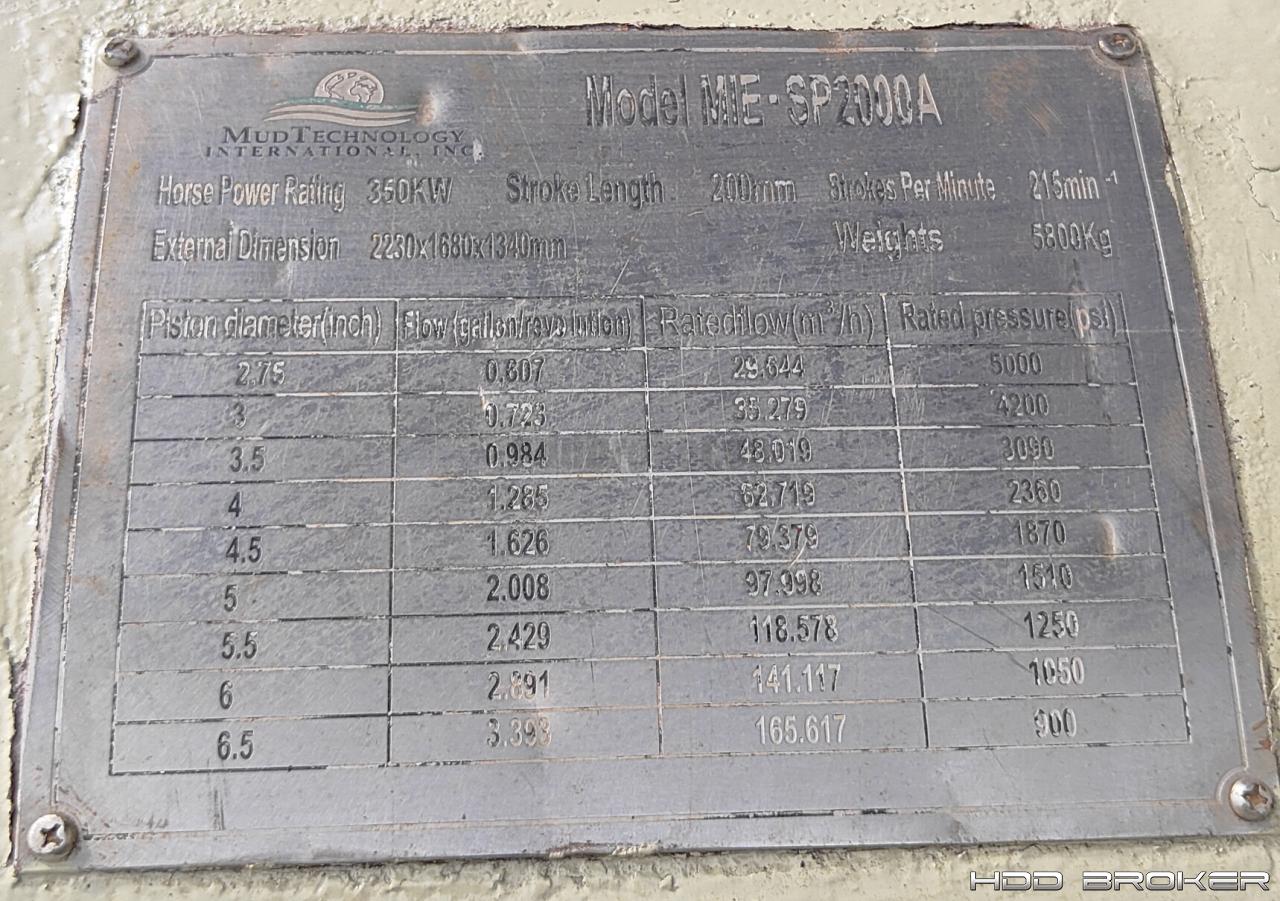 MUDTECHNOLOGY
INTERNATIONAL, INC
Model MIE-SP2000A
Horse Power Rating 350KW Stroke Length 200mm Strokes Per Minute 215min⁻¹
External Dimension 2230x1680x1340mm Weights 5800Kg
Piston diameter(inch) Flow (gallon/revolution) Ratedflow(m³/h) Rated pressure(psi)
2.75 0.607 29.644 5000
3 0.723 35.279 4200
3.5 0.984 48.019 3090
4 1.285 62.719 2360
4.5 1.626 79.379 1870
5 2.008 97.998 1510
5.5 2.429 118.578 1250
6 2.891 141.117 1050
6.5 3.393 165.617 900
HDD BROKER